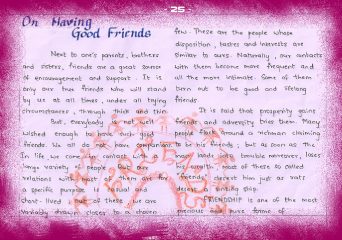 25
On Having
Good Friends
Next to one's parents, brothers
and sisters, friends are a great source
of encouragement and support. It is
only our true friends who will stand
by us at all times, under all trying
circumstances, through thick and thin
But, everybody is not well
wished enough to have such good
friends. We all do not have companion
In life we come in contact with
large variety of people. But our
relations with most of them are for
a specific purpose is casual and
short-lived. Out of these we are
variably drawn closer to a chosen
few. These are the people whose
disposition, tastes and interests are
similar to ours. Naturally, our contacts
with them become more frequent and
all the more intimate. Some of them
turn out to be good and lifelong
friends
It is said that prosperity gains
friends and adversity tries them. Many
people flock around a richman claiming
to be his friends; but as soon as the
man lands in trouble moreover, loses
his wealth, most of these so called
'friends' desert him just as rats
desert a sinking ship.
FRIENDSHIP is one of the most
precious and pure forms of